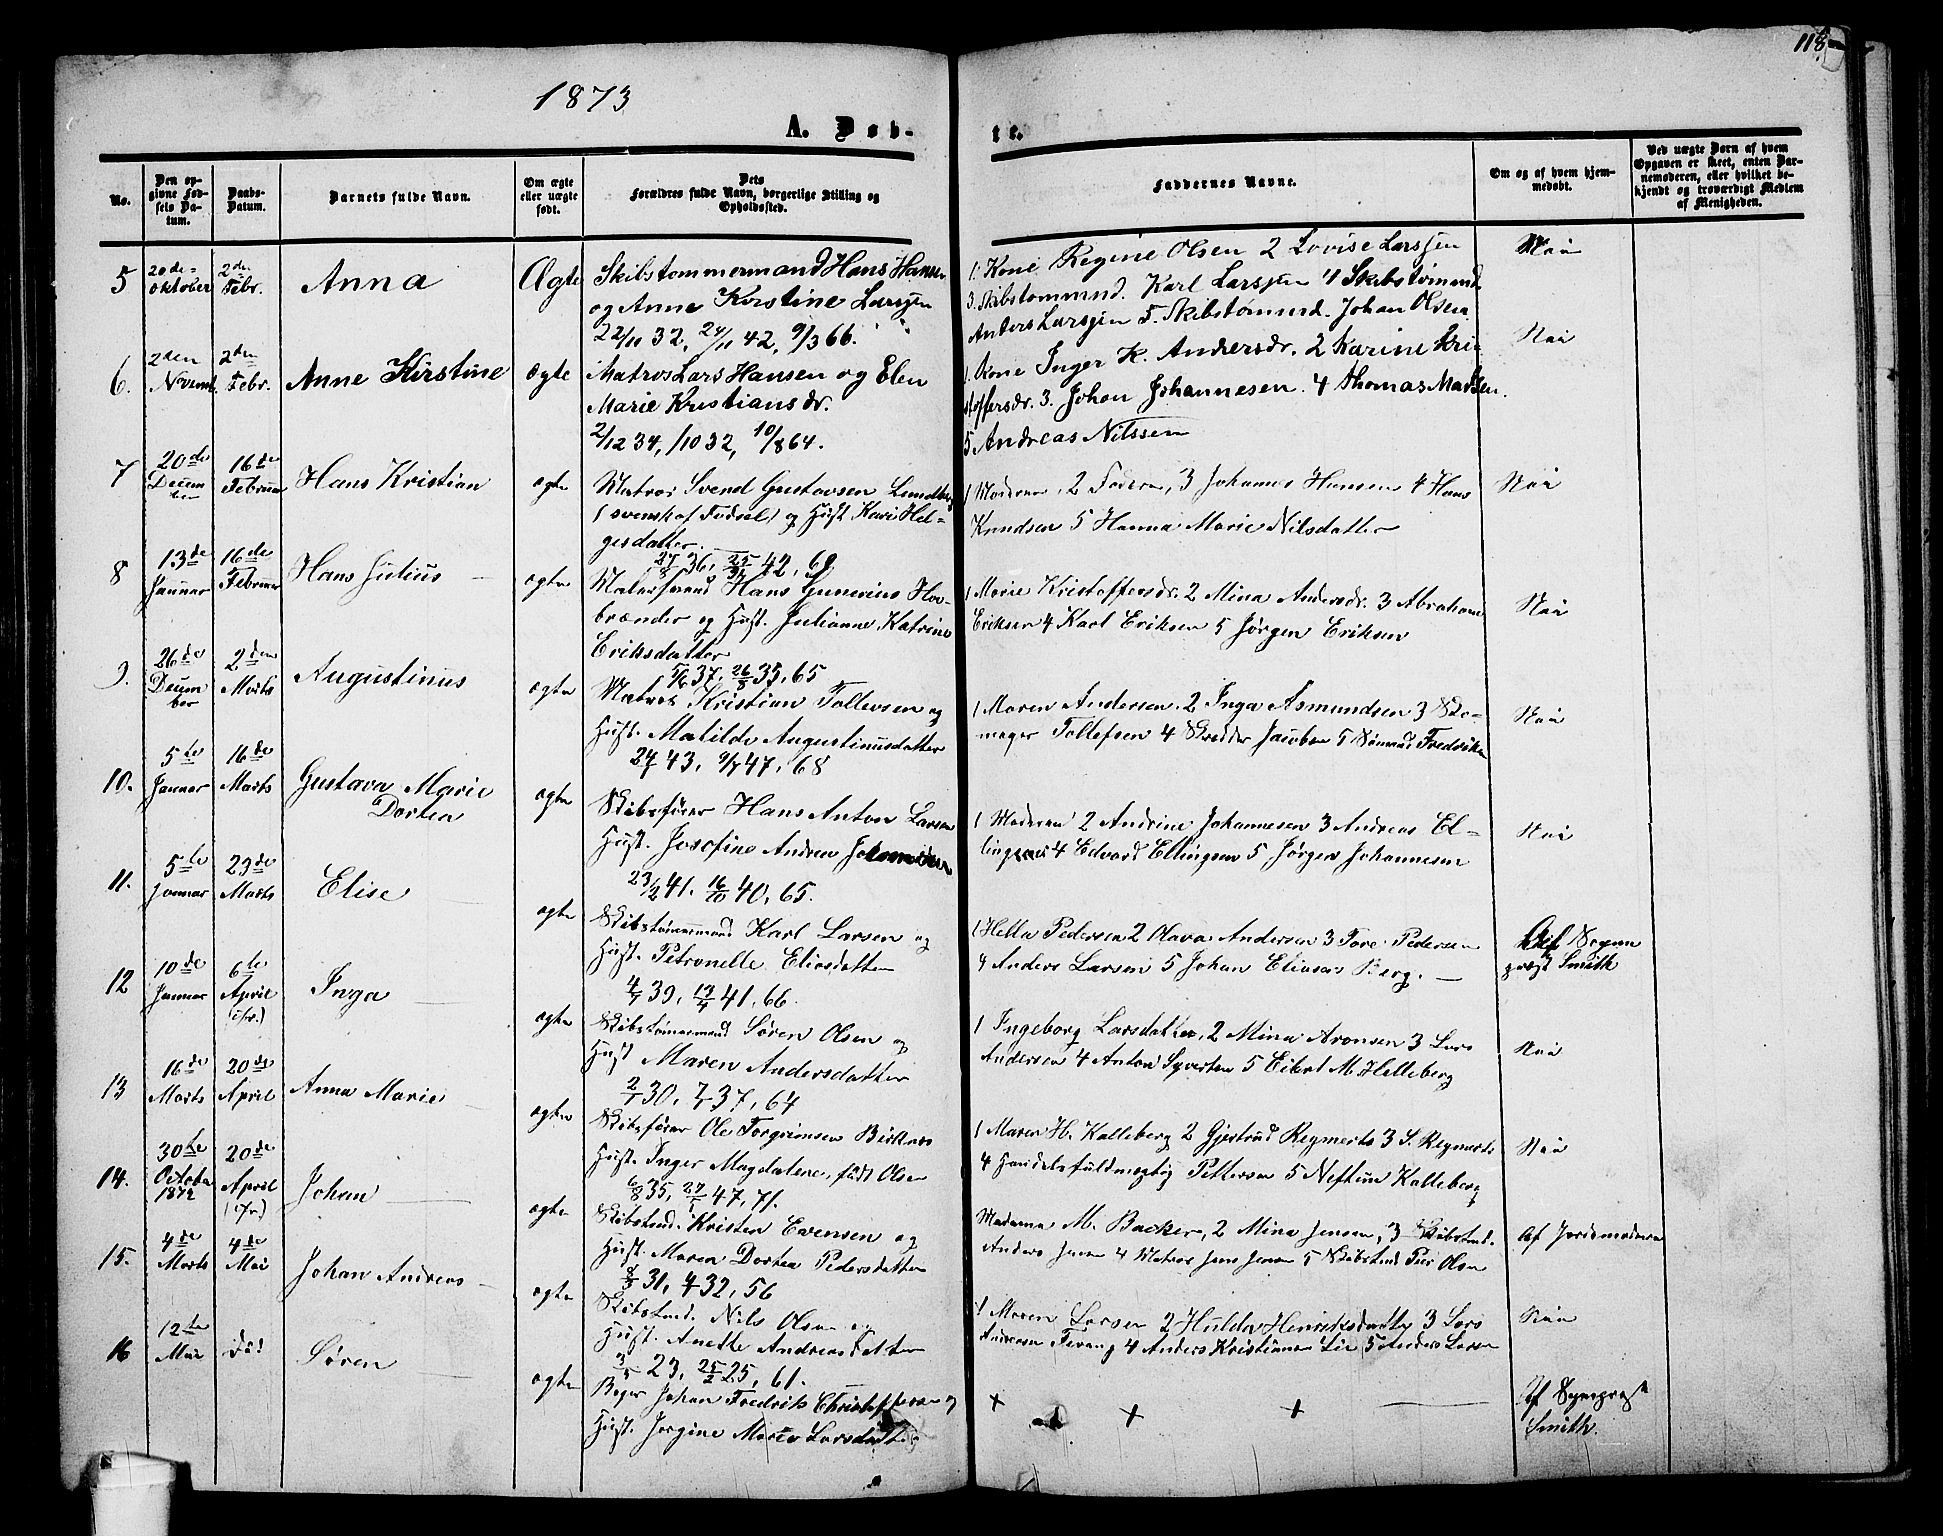 118
1873
A. Døb-
te.
No.
Den opgivne Fødsels Datum.
Daabs-Datum.
Barnets fulde Navn.
Om ægte eller uægte født.
Dets Forældres fulde Navn, borgerlige Stilling og Opholdssted.
Faddernes Navne.
Om og af hvem hjemmedøbt.
Ved uægte Børn af hvem Opgaven er skeet, enten Barnemoderen, eller hvilket bekjendt og troværdigt Medlem af Menigheden.
5 20de Oktober 2den Febr. Anna Ægte
Skibstømmermand Hans Hansen
og Anne Kirstine Larsjen
22/11 32, 24/11 42, 9/3 66.
1. Kone Regine Olsen 2 Lovise Larsjen
3. Skibstømmd. Karl Larsjen 4 Skibstømmd
Anders Larsjen 5. Skibstømmd. Johan Olsen
Nei
6. 2den Novemb. 2den Febr. Anne Kirstine ægte
Matros Lars Hansen og Elen
Marie Kristiansdr.
2/12 34, /10 32, 10/8 64.
1. Kone Inger K. Andersdr. 2 Karine Kri-
stoffersdr. 3. Johan Johannesen. 4 Thomas Madsen.
5 Andreas Nilssen
Nei
7 20de Decem ber 16de Februar Hans Kristian ægte
Matros Svend Gustavsen Lundberg
(svensk af Fødsel) og Hust. Kari Hel-
gesdatter.
36, 42, 69
1 Moderen, 2 Faderen, 3 Johannes Hansen 4 Hans
Knudsen 5 Hanna Marie Nilsdatter
Nei
8 13de Januar 16de Februar Hans Julius ægte
Matersmand Hans Gunerius Ho-
brænder og Hust. Julianne Katrine
Eriksdatter
5/6 37, 26/8 35, 65
1 Marie Kristoffersdr. 2 Mina Andersdr. 3 Abraham
Eriksen 4 Karl Eriksen 5 Jørgen Eriksen
Nei
9. 26de Decem ber 2den Marts Augustinus ægte
Matros Kristian Tollevsen og
Hust. Matilde Augustinusdatter
43, 9/7 47, 68
1 Maren Andersen, 2 Inga Asmundsen 3 Sko-
mager Tollefsen 4 Skredder Jacobsen 5 Sømand Fredriksen
Nei
10. 5te Januar 16de Marts Gustava Marie
Dortea ægte
Skibsfører Hans Anton Larsen
Hust. Josefine Andrea
23/2 41. 16/10 40, 65.
1 Moderen 2 Andrine Johannesen 3 Andreas El-
lingsen 4 Edvard Ellingsen 5 Jørgen Johannesen
Nei
11. 5te Januar 23de Marts Elise ægte
Skibstømmermand Karl Larsen og
Hust. Petronelle Eliasdatter
4/7 39, 41, 66.
1 Hella Pedersen 2 Olava Andersen 3 Tore Pedersen
4 Anders Larsen 5 Johan Eliasen Berg.
Af Sogne
præst Smith
12 10de Januar 6te April Inga ægte
Skibstømmermand Søren Olsen og
Hust Maren Andersdatter
2/1 30, 7/1 37, 64
1 Ingeborg Larsdatter, 2 Mina Aronsen 3 Lars
Andersen 4 Anton Syvertsen 5 Eilert M. Helleberg
Nei
13 16de Marts 20de April Anna Marie ægte
Skibsfører Ole Torgrimsen Birknes
Hust. Inger Magdalene, født Olsen
6/8 35, 27/1 47, 71.
1 Maren H. Kalleberg 2 Gjertrud Regnerts 3 S. Regnerts
4 Handelsfuldmægtig Pettersen 5 Neftun Kalleberg
Nei
14. 30te October 1872 20de April Johan ægte
Skibstmd. Kristen Evensen og
Hust. Maren Dortea Pedersdatter
8/3 31, 4/7 32, 56
Madame M. Backer, 2 Mina Jensen, 3 Skibstmd.
Anders Jensen 4 Matros Jens Jensen 5 Skibstmd Peer Olsen
Af Jordemoderen
15. 4de Marts 4de Mai Johan Andreas ægte
Skibstmd. Nils Olsen og
Hust. Anette Andreasdatter
3/5 23, 25/2 25, 61.
1 Maren Larsen 2 Hulda Henriksdatter 3 Lars
Andersen 4 Anders Kristiansen Lie 5 Anders Larsen
Nei
16 12te Mai Søren ægte
Bager Johan Fredrik Christoffersen og
Hust. Jorgine Marie Larsdatter
+ + +
Af Sognepræst
Smith.